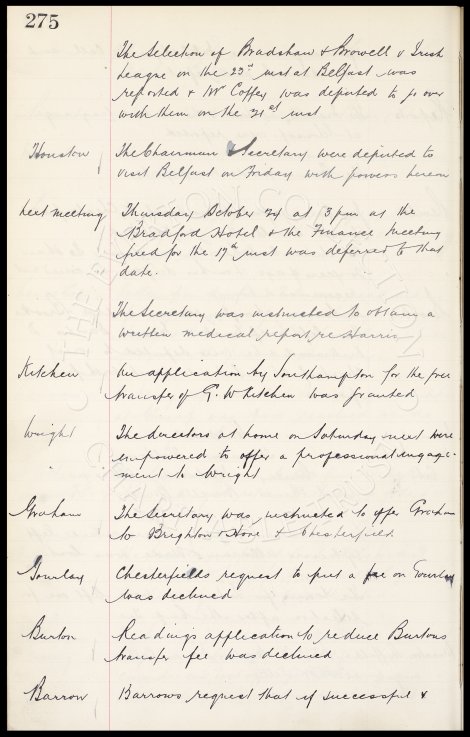 275
The Selection of Bradshaw & Browell v Irish
League on the 23rd inst at Belfast was
reported & Mr Coffey was deputed to go over
with them on the 21st inst
Houston
The Chairman & Secretary were deputed to
visit Belfast on Friday with powers herein
next meeting
Thursday October 24 at 3 pm at the
Bradford Hotel & the Finance Meeting
fixed for the 17th inst was deferred to that
date.
The Secretary was instructed to obtain a
written medical report re Harris
Kitchen
An application by Southampton for the free
transfer of G. W Kitchen was granted
Wright
The directors at home on Saturday next were
empowered to offer a professional engage-
ment to Wright
Graham
The Secretary was instructed to offer Graham
to Brighton & Hove & Chesterfield
Gourlay
Chesterfields request to put a fee on Gourlay
was declined
Burton
Readings application to reduce Burtons
transfer fee was declined
Barrow
Barrows request that if successful &